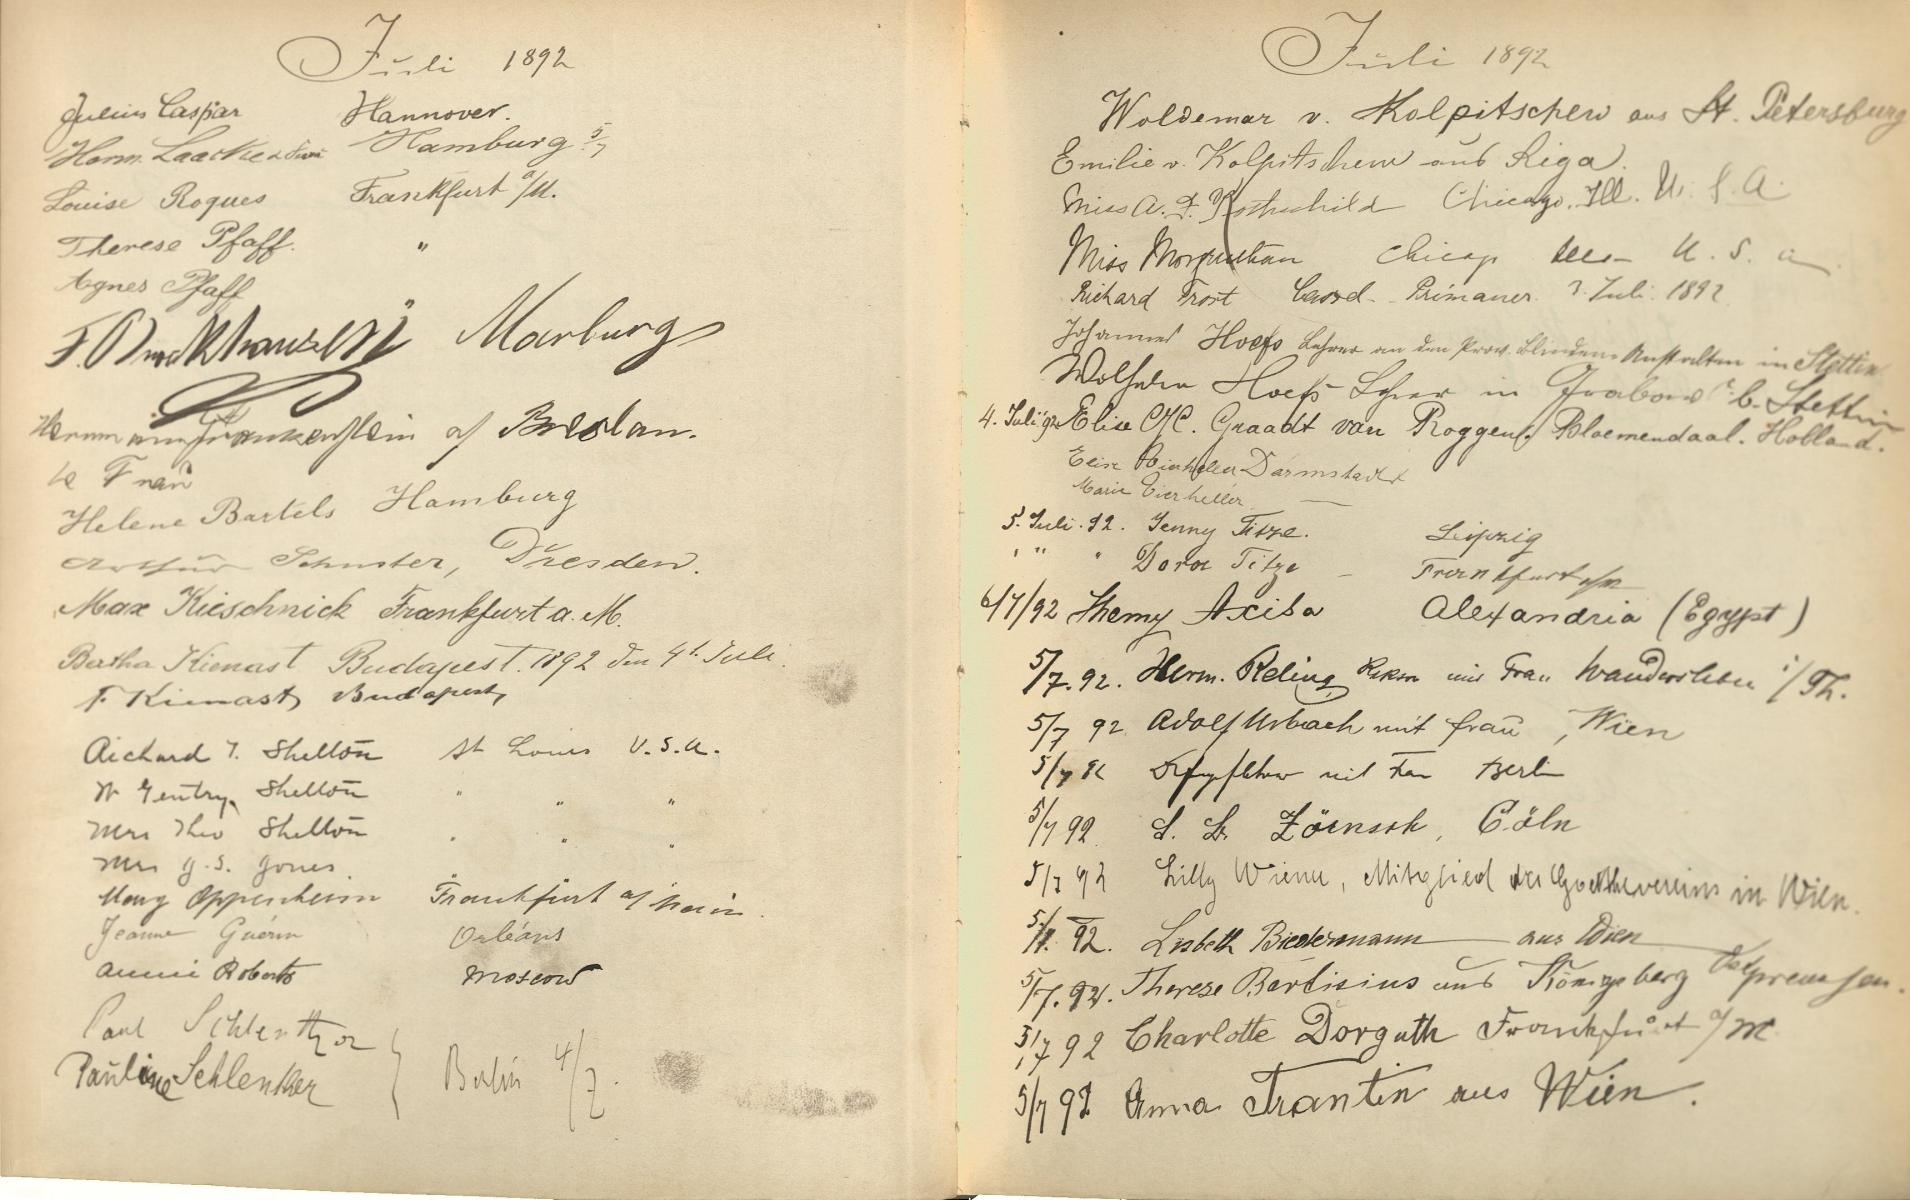 Juli 1892
Julius Caspar Hannover.
Herm. Laacke Hamburg 5/7
Louise Roques Frankfurt a/M.
Therese Pfaff. "
Agnes Pfaff "
F. Marburg
Frankenstein Breslau.
Frau
Helene Bartels Hamburg
Arthur Schuster, Dresden.
Max Kieschnick Frankfurt a. M.
Bertha Kienast Budapest. 1892 den 4t Juli.
F. Kienast, Budapest,
Richard T. Shelton St Louis U.S.A.
W Gentry Shelton " " "
Mrs Theo Shelton " " "
Mrs J. S. Jones
Oppenheim Frankfurt a/ Main.
Jeanne Guérin Orléans
Annie Roberts Moscow
Paul Schlenther
Pauline Schlenther Berlin 4/7.
Juli 1892
Woldemar v. Kolpitschew aus St. Petersburg
Emilie v. Kolpitschew aus Riga.
Miss A. F. Rothschild Chicago. Ill. U. S. A.
Miss Morgenthau Chicago U. S. a.
Richard Frost Cassel Primaner Juli 1892
Johannes Hoefs Lehrer an den Prov. Blinden Anstalten in Stettin
Wilhelm Hoefs Lehrer in Grabow b. Stettin
4. Juli 92 Elise C. Graadt van Roggen. Bloemendaal. Holland.
Elise Darmstadt
Marie Eierheller —
5. Juli. 92. Jenny Titze. Leipzig
" " " Dora Titze — Frankfurt a/m
6/7/92 Axisa Alexandria (Egypt)
5/7.92. Herm. Reling mit Frau Wandersleben i/Th.
5/7 92 Adolf Urbach mit Frau, Wien
5/7 92 mit Frau Berlin
5/7 92 Cöln
5/7 92 Lilly Wiener, Mitglied des Goethevereins in Wien.
5/7. 92. Lisbeth Biedermann aus Wien
5/7. 92. Therese Bartisius aus Königsberg Ostpreussen.
5/7 92 Charlotte Dorguth Frankfurt a/M
5/7 92 Anna Trantin aus Wien.